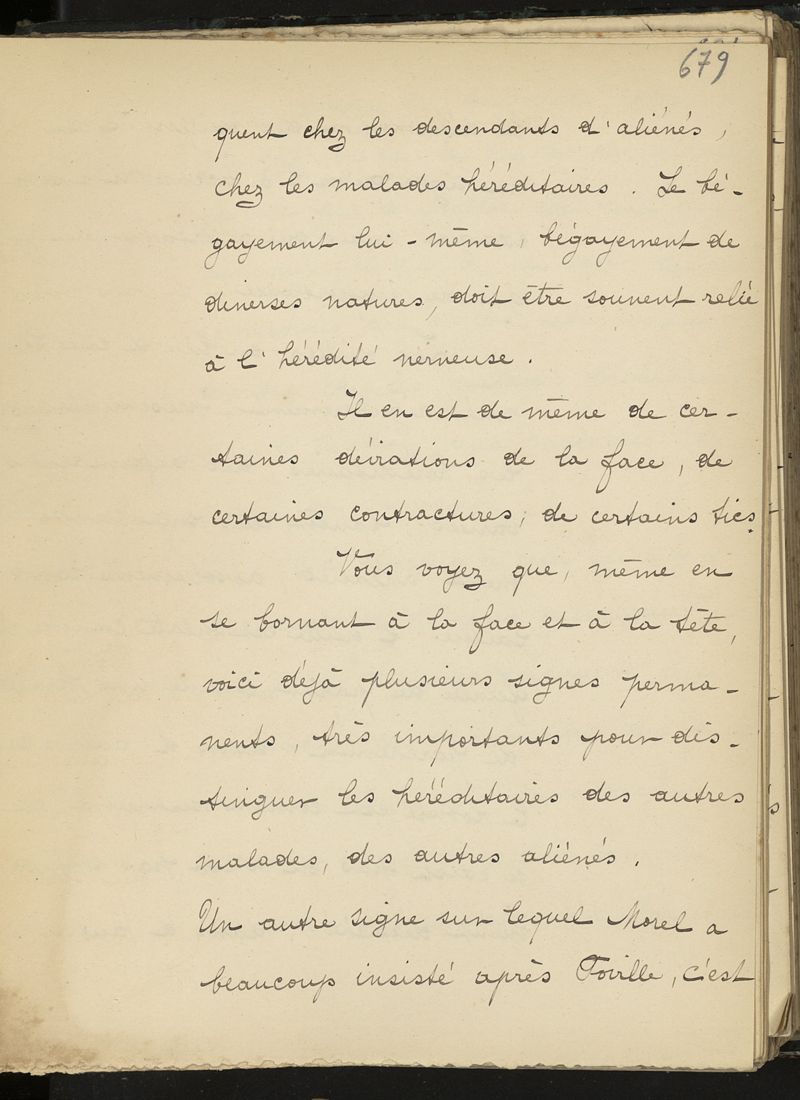 679
quent chez les descendants d'aliénés,
chez les malades héréditaires. Le bé-
gayement lui-même, bégayement de
diverses natures, doit être souvent relié
à l'hérédité nerveuse.
Il en est de même de cer-
taines déviations de la face, de
certaines contractures, de certains tics.
Vous voyez que, même en
se bornant à la face et à la tête,
voici déjà plusieurs signes perma-
nents, très importants pour dis-
tinguer les héréditaires des autres
malades, des autres aliénés.
Un autre signe sur lequel Morel a
beaucoup insisté après Foville, c'est